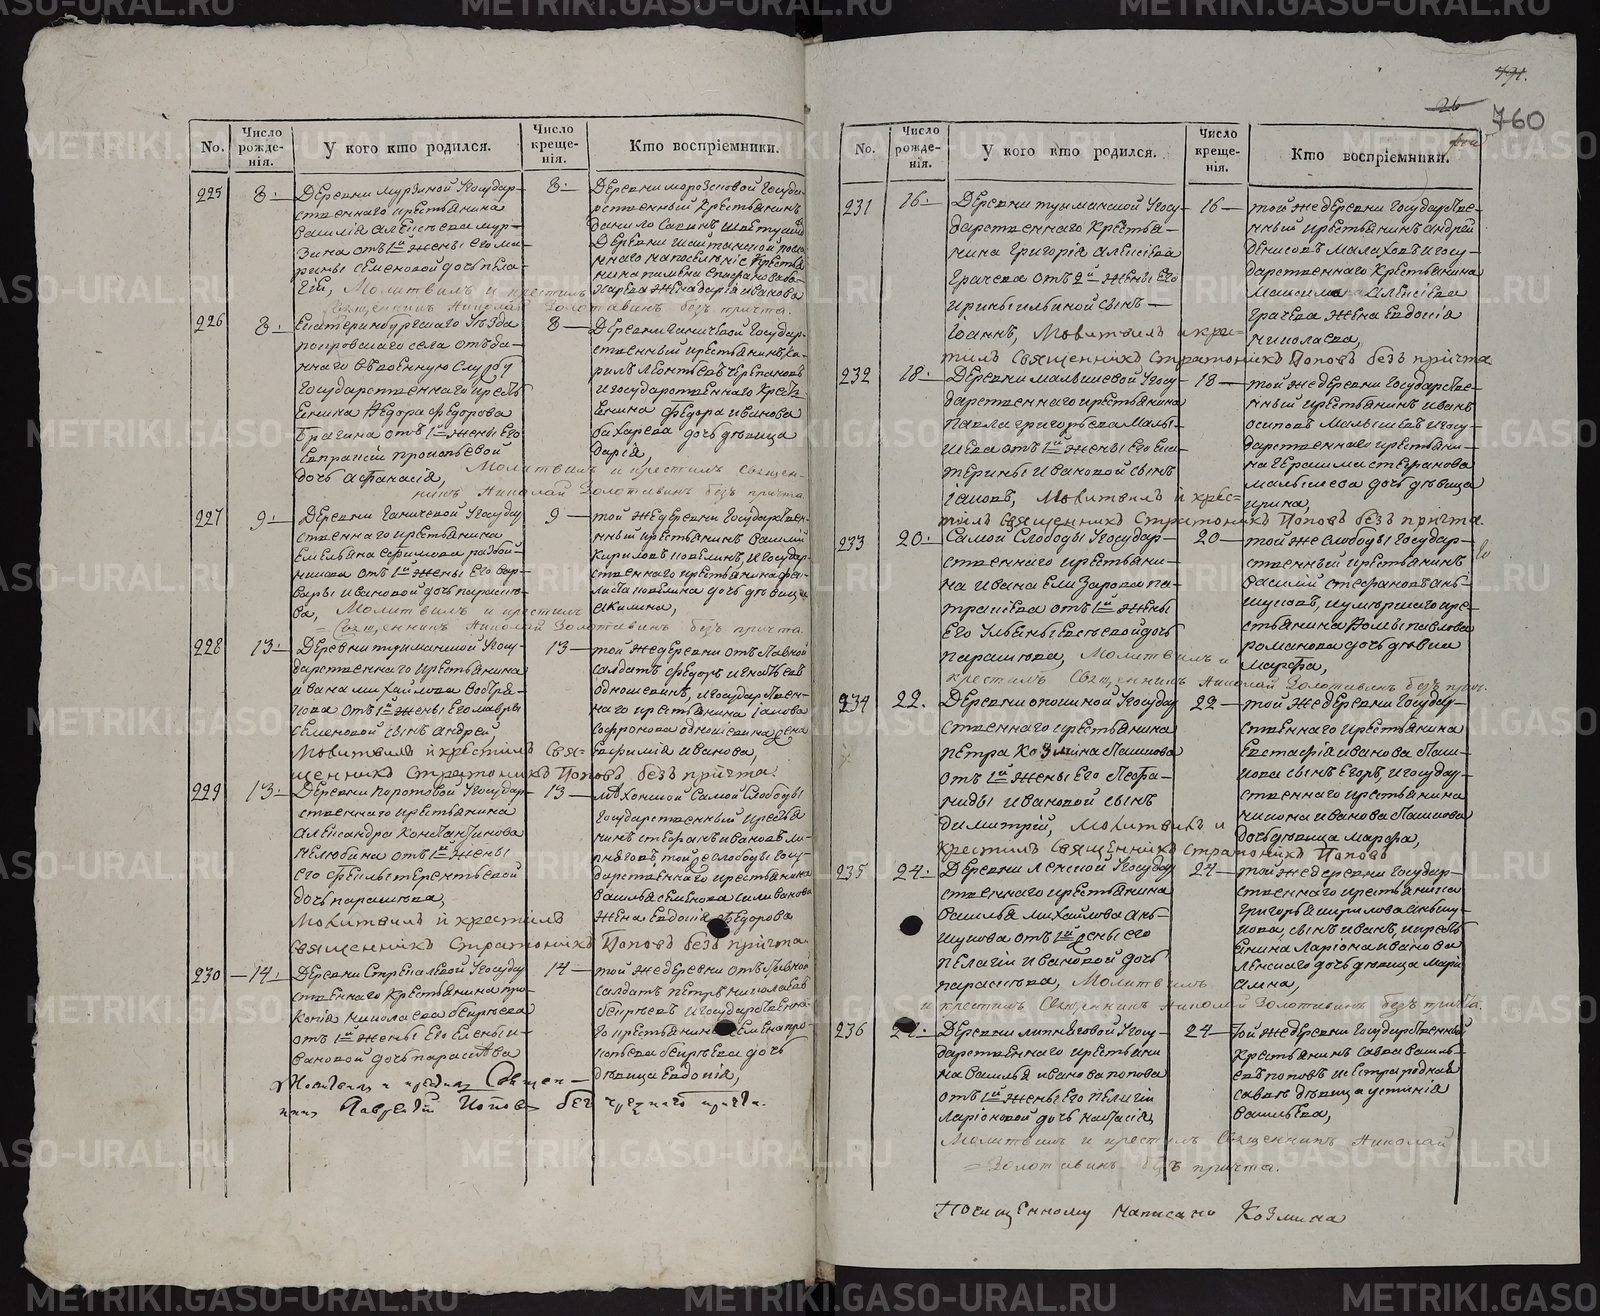 No.
Число рожде-нія.
У кого кто родился.
Число креще-нія.
Кто воспріемники.
225
8.
8.
Деревни Мурзиной Государ-
ственнаго крестьянина
Василія Алексѣева Мур-
зина отъ 1й жены его Ма-
рины Семеновой дочь Пела-
гія, Молитвилъ и крестилъ
Священникъ Николай Золотавинъ безъ причта.
Деревни Морозковой Госуда-
рственный крестьянинъ
Данило Савинъ
Деревни
жена Дарія Иванова
226
8.
8
Екатеринбургскаго уѣзда
Покровскаго села отъда-
ннаго въ военную службу
Государственнаго кресть
янина Федора Федорова
Брагина отъ 1й жены его
Евпраксіи Прокопьевой
дочь Афанасія, Молитвилъ и крестилъ Священ-
никъ Николай Золотавинъ безъ причта
Деревни Ганичевой Государ-
ственный крестьянинъ Ки-
рилъ Леонтьевъ Черепановъ
и государственнаго кресть
янина Федора Иванова
Бахарева дочь дѣвица
Дарія,
227
9.
9
Деревни Ганичевой Государ
ственнаго крестьянина
Емельяна Ефимова Разбой-
никова отъ 1й жены его Вар-
вары Ивановой дочь Параско-
ва, Молитвилъ и крестилъ
Священникъ Николай Золотавинъ безъ причта.
той же деревни Государствен-
нный крестьянинъ Василій
Кириловъ и Государ-
ственнаго крестьянина Фи-
листа дочь дѣвица
Акилина,
228
13.
13
Деревни Туманской Госу-
дарственнаго крестьянина
Ивана Михайлова Востря-
кова отъ 1й жены его Мавры
Семеновой сынъ Андрей,
Молитвилъ и крестилъ Свя-
щенникъ Стратоникъ Поповъ безъ причта.
той же деревни отставной
солдатъ Федоръ Игнатьевъ
Одношевинъ, и государствен-
наго крестьянина Іакова
Софронова Одношевина жена
Евфимія Иванова,
229
13.
13
Деревни Коротковой Государ-
ственнаго крестьянина
Александра Константинова
Нелюбина отъ 1й жены
его Феклы Терентьевой
дочь Параскова,
Молитвилъ и крестилъ
Священникъ Стратоникъ Поповъ безъ причта
Самой Слободы
Государственный кресть
нинъ Стефанъ Ивановъ
той же слободы госу-
дарственнаго крестьянина
Василья Семенова Силиванова
жена Евдокія Федорова
230
14.
14
Деревни Стрекалевой Государ
ственнаго крестьянина Про-
копія Николаева Бекрѣева
отъ 1й жены его Елены И-
вановой дочь Парасковa
Молитвилъ и крестилъ Священ-
никъ Поповъ безъ причта.
той же деревни отставной
солдатъ Петръ Николаевъ
Бекрѣевъ и государственна-
го крестьянина Семена Про-
копьева Бекрѣева дочь
дѣвица Евдокія,
791.
26
760
No.
Число рожде-нія.
У кого кто родился.
Число креще-нія.
Кто воспріемники.
231
16.
16
Деревни Туманской Госу-
дарственнаго крестья-
нина Григорія Алексѣева
Грачева отъ 2й жены его
Ирины Ильиной сынъ
Іоаннъ, Молитвилъ и кре-
тилъ Священникъ Стратоникъ Поповъ безъ причта
той же деревни Государстве-
нный крестьянинъ Андрей
Денисовъ Малаховъ и госу-
дарственнаго крестьянина
Максима Алексѣева
Грачева жена Евдокія
Николаева,
232
18.
18
Деревни Малышевой Госу-
дарственнаго крестьянина
Павла Григорьева Малы-
шева отъ 1й жены его Ека-
терины Ивановой сынъ
Іаковъ, Молитвилъ и крес-
тилъ Священникъ Стратоникъ Поповъ безъ причта.
той же деревни Государстве-
нный крестьянинъ Иванъ
Осиповъ Малышевъ и госу-
дарственнаго крестьяни-
на Герасима Стефанова
Малышева дочь дѣвица
Ирина,
233
20.
20
Самой Слободы Государ-
ственнаго крестьяни-
на Ивана Елизарова Па-
тракѣева отъ 1й жены
его Ульяны Евсѣевой дочь
Параскова, Молитвилъ и
крестилъ Священникъ Николай Золотавинъ безъ прич.
той же Слободы Государ-
ственный крестьянинъ
Василій Стефановъ Ань-
шуковъ, и умершаго кре-
стьянина Фомы Павлова
Романова дочь дѣвица
Марфа,
234
22.
22
Деревни Ококиной Государ
ственнаго крестьянина
Петра Козмина Пашкова
отъ 1й жены его Леофа-
ниды Ивановой сынъ
Димитрій, Молитвилъ и
крестилъ Священникъ Стратоникъ Поповъ
той же деревни Государ-
ственнаго крестьянина
Евстафія Иванова Паш-
кова сынъ Егоръ, и государ-
ственнаго крестьянина
Никона Иванова Пашкова
дочь дѣвица Марфа,
235
24.
24
Деревни Ленской Государ
ственнаго крестьянина
Василья Михайлова Ань-
шукова отъ 1й жены его
Пелагіи Ивановой дочь
Параскова, Молитвилъ
и крестилъ Священникъ Николай Золотавинъ безъ причта.
той же деревни Государ-
ственнаго крестьянина
Григорья Кирилова Аньшу-
кова, сынъ Иванъ, и кресть
янина Ларіона Иванова
Ленскаго дочь дѣвица Марі
амна,
236
24.
24
Деревни Липняговой Госу-
дарственнаго крестьяни
на Василья Иванова Попова
отъ 1й жены его Пелагіи
Ларіоновой дочь Настасія,
Молитвилъ и крестилъ Священникъ Николай
Золотавинъ безъ причта.
той же деревни Государственный
крестьянинъ Савва Василь-
евъ Поповъ и сестра родная
Саввы дѣвица Устинія
Васильева,
Почищенному написано Козмина
METRIKI.GASO-URAL.RU